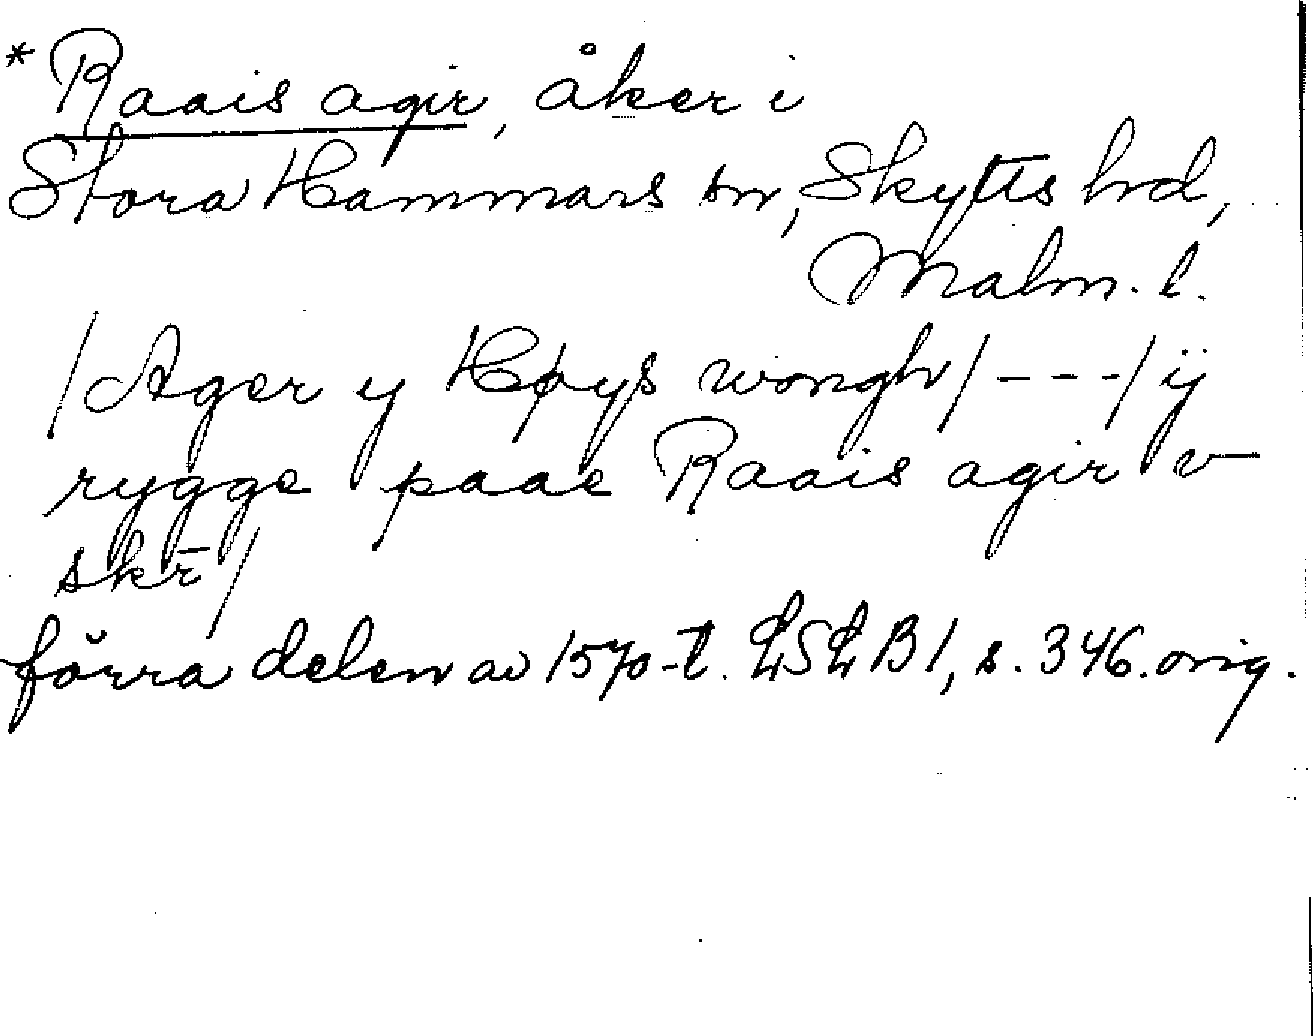 * Raais agir, åker i
Stora Hammars sn, Skytts hd,
Malm. l.
/Ager y Høys wongh/---/ij
rygge paae Raais agir v
skr̄/
förra delen av 1570-t. LSLB1, s. 346. orig.